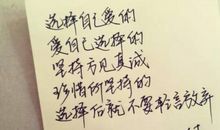 选择自己爱的
爱自己选择的
坚持方见真诚
珍惜所坚持的
选择后就不要轻言放弃